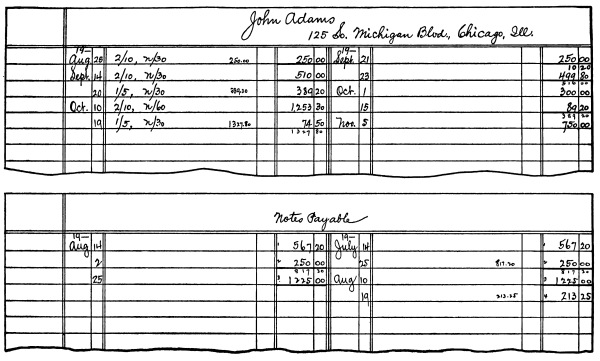 John Adams
125 So. Michigan Blvd., Chicago, Ill.
19— 19—
Aug. 28 2/10, n/30 250.00 250 00 Sept. 21 250 00
10 20
Sept. 14 2/10, n/30 510 00 23 499 80
510 00
20 1/5, n/30 389.20 389 20 Oct. 1 300 00
Oct. 10 2/10, n/60 1,253 30 15 89 20
389 20
19 1/5, n/30 1327.80 74 50 Nov. 5 750 00
1327 80
Notes Payable
19— 19—
Aug 14 1 567 20 July 14 1 567 20
2 2 250 00 25 817.20 2 250 00
817 20 817 20
25 3 1225 00 Aug 10 3 1225 00
19 213.25 4 213 25